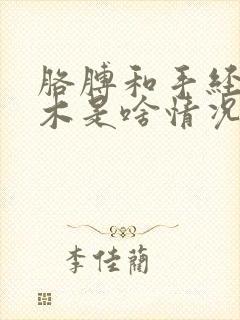 胳膊和手经
木是啥情况
李佳蔺